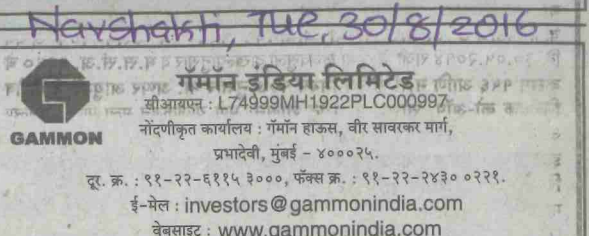 Navshakti, Tue, 30/8/2016
गॅमॉन इंडिया लिमिटेड
सीआयएन : L74999MH1922PLC000997
GAMMON
नोंदणीकृत कार्यालय : गॅमॉन हाऊस, वीर सावरकर मार्ग,
प्रभादेवी, मुंबई - ४०००२५.
दूर. क्र. : ९१-२२-६११५ ३०००, फॅक्स क्र. : ९१-२२-२४३० ०२२१.
ई-मेल : investors@gammonindia.com
वेबसाइट : www.gammonindia.com